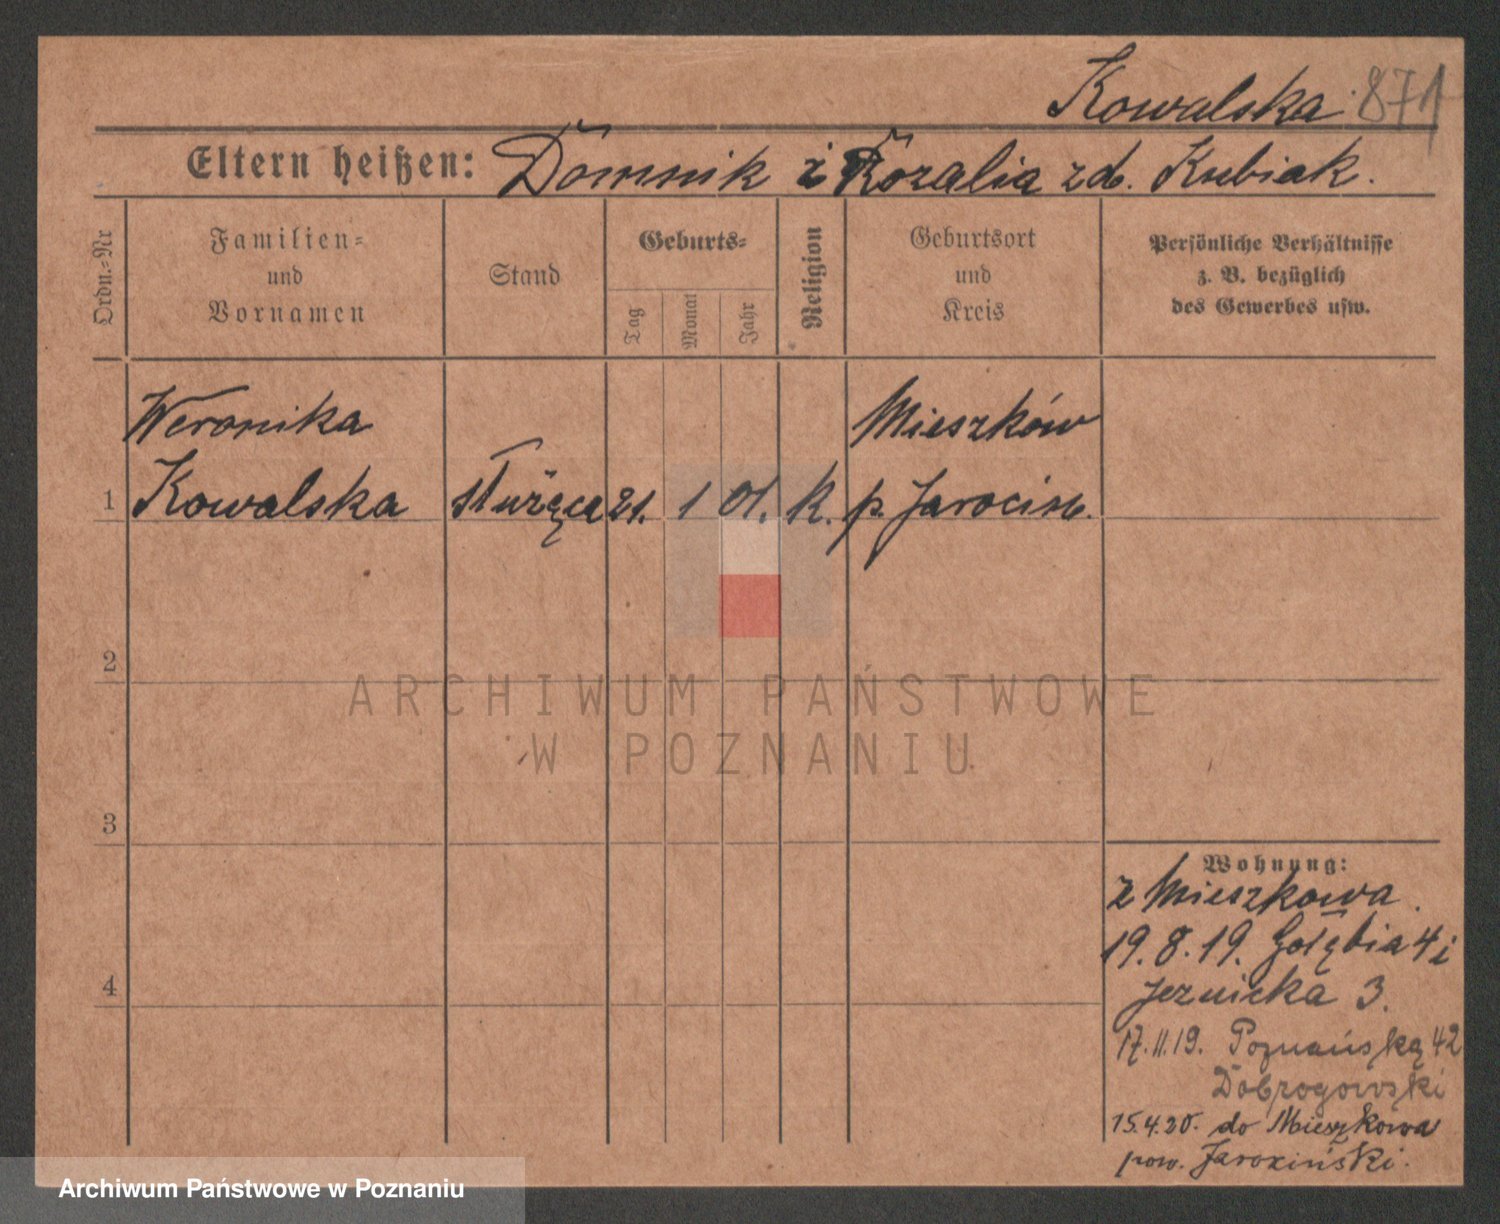 Kowalska 871
Eltern heißen: Domnik i Rozalia zd. Kubiak.
Ordn.=Nr
Familien=
und
Vornamen
Stand
Geburts=
Tag
Monat
Jahr
Religion
Geburtsort
und
Kreis
Persönliche Verhältnisse
z. B. bezüglich
des Gewerbes usw.
Weronika Mieszków
1 Kowalska służąca 21. 1 01. k. p. Jarocin.
2
3
4
Wohnung:
z Mieszkowa.
19.8.19. Gołębia 4 i
Jeznicka 3.
17.11.19. Poznańską 42
Dobrogowski
15.4.20. do Mieszkowa
pow. Jarociński.
ARCHIWUM PAŃSTWOWE
W POZNANIU
Archiwum Państwowe w Poznaniu